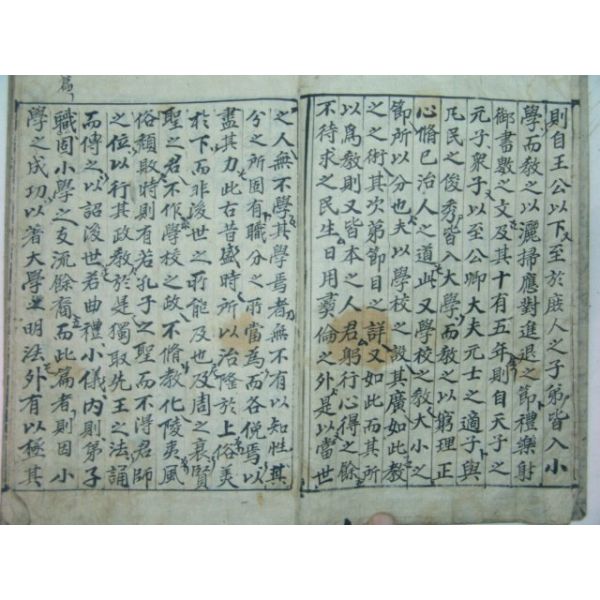 則自王公以下至於庶人之子弟皆入小
學而教之以灑掃應對進退之節禮樂射
御書數之文及其十有五年則自天子之
元子衆子以至公卿大夫元士之適子與
凡民之俊秀皆入大學而教之以窮理正
心脩已治人之道此又學校之教大小之
節所以分也夫以學校之設其廣如此教
之之術其次第節目之詳又如此而其所
以爲教則又皆本之人君躬行心得之餘
不待求之民生日用彝倫之外是以當世
之人無不學其學焉者無不有以知性其
分之所固有職分之所當爲而各俛焉以
盡其力此古昔盛時所以治隆於上俗美
於下而非後世之所能及也及周之衰賢
聖之君不作學校之政不脩教化陵夷風
俗頹敗時則有若孔子之聖而不得君師
之位以行其政教於是獨取先王之法誦
而傳之以詔後世若曲禮小儀內則弟子
職固小學之支流餘裔而此篇者則因小
學之成功以著大學之明法外有以極其
篇